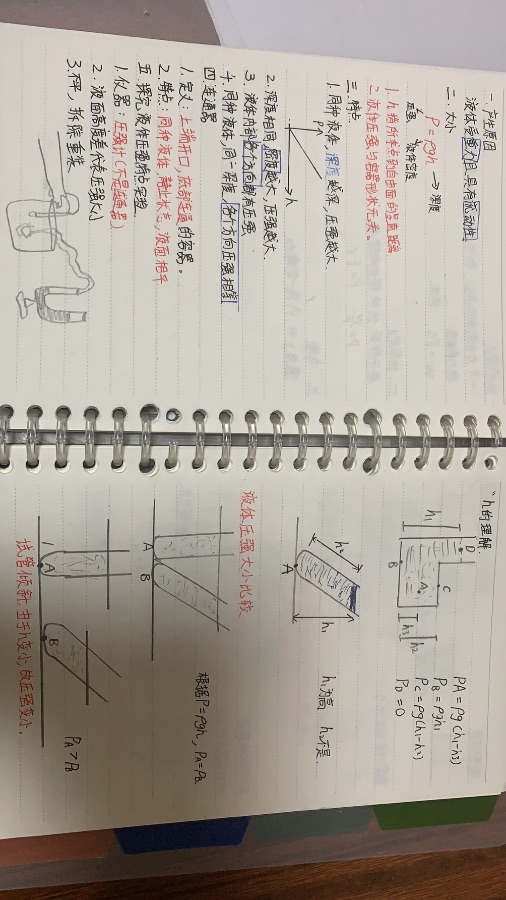 一. 产生原因
液体受重力且具有流动性
二. 大小
P=ρgh → 深度
液体密度
1. h指所求点到自由面的竖直距离
2. 液体压强与容器形状无关。
三. 特点
1. 同种液体, 深度越深, 压强越大.
P
h
2. 深度相同, 密度越大, 压强越大.
3. 液体内部各个方向都有压强
4. 同种液体, 同一深度, 各个方向压强相等
四. 连通器
1. 定义: 上端开口, 底部连通的容器。
2. 特点: 同种液体, 静止状态, 液面相平
五. 探究液体压强特点实验
1. 仪器: 压强计(不是连通器)
2. 液面高度差代表压强大小
3. 拆除重装
"h的理解.
h1
D
C
A
B
h3
h2
PA=ρg(h1-h3)
PB=ρgh1
PC=ρg(h1-h2)
PD=0
h2
h1
A
h1为高 h2不是.
液体压强大小比较
A
B
根据P=ρgh, PA=PB
A
B
PA>PB
试管倾斜, 由于h变小, 故压强变小.